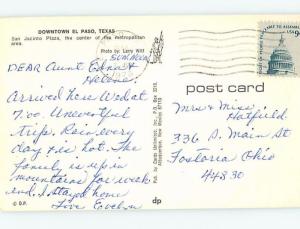 DOWNTOWN EL PASO, TEXAS
San Jacinto Plaza, the center of the metropolitan
area.
Photo by: Larry Witt
SUN. NOON
DEAR Aunt Edna &
Helene:
Arrived here Wed at
7:00. Uneventful
trip. Rain every
day & is hot. The
family is up in
mountains for week
end. I stayed home
Love Evelyn
© D.P.
Pub. by Petley
dp
post card
USA 9c
Mrs & Miss
Hatfield
336 S. Main St
Fostoria Ohio
44830